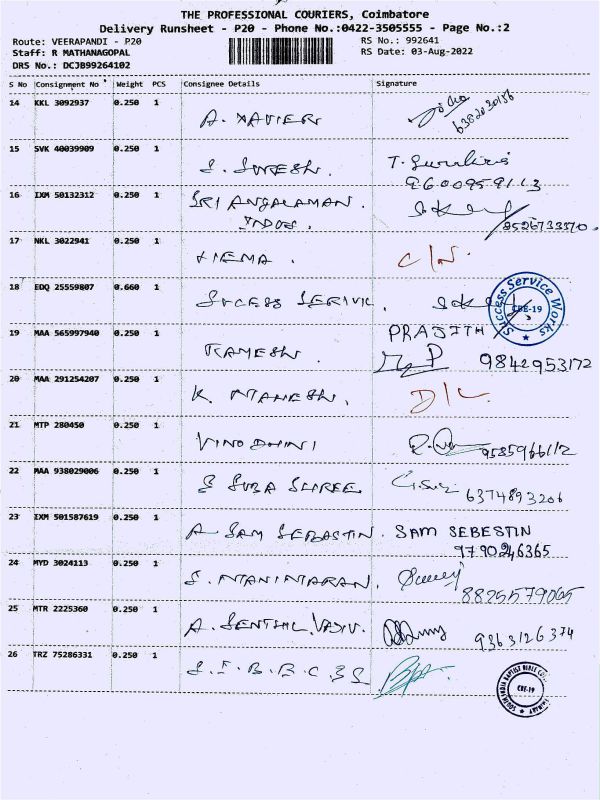 THE PROFESSIONAL COURIERS, Coimbatore
Delivery Runsheet - P20 - Phone No.:0422-3505555 - Page No.:2
Route: VEERAPANDI - P20 RS No.: 992641
Staff: R MATHANAGOPAL RS Date: 03-Aug-2022
DRS No.: DCJB99264102
S No Consignment No Weight PCS Consignee Details Signature
14 KKL 3092937 0.250 1 A. XAVIER 6382030156
15 SVK 40039909 0.250 1 S. SURESH. T.
9600959113
16 IXM 50132312 0.250 1 SRI ANGALAMAN.
INDUS. 8526733570.
17 NKL 3022941 0.250 1 HEMA. C/N.
18 EDQ 25559807 0.660 1 SUCESS SERIVIC.
Success Service Works CBE-19
19 MAA 565997940 0.250 1 RAMESH. PRAJITH
9842953172
20 MAA 291254207 0.250 1 K. MAHESH. D/L.
21 MTP 280450 0.250 1 VINODHINI 9585966112
22 MAA 938029006 0.250 1 S SUBA SHREE. 6374893206
23 IXM 501587619 0.250 1 A SAM SEBASTIN. SAM SEBESTIN
9790246365
24 MYD 3024113 0.250 1 S. MANIMARAN. 8825579065
25 MTR 2225360 0.250 1 A. SENTHIL VADIV. 9363126374
26 TRZ 75286331 0.250 1 S.I.B.B.C.
SOUTH INDIA BAPTIST BIBLE CBE-19